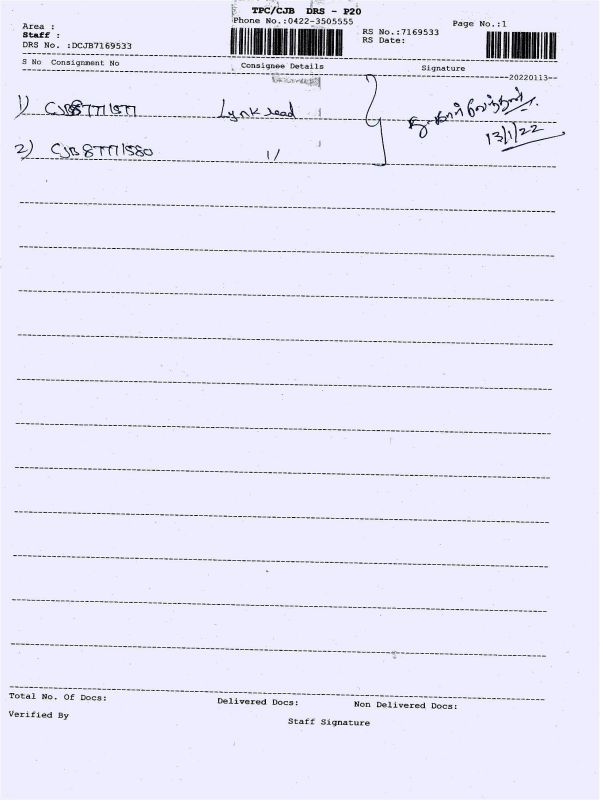 TPC/CJB DRS - P20
Area : Phone No.:0422-3505555 Page No.:1
Staff : RS No.:7169533
DRS No. :DCJB7169533 RS Date:
S No Consignment No Consignee Details Signature
20220113
1) CJB8771577
2) CJB8771580 11
13/1/22
Total No. Of Docs: Delivered Docs: Non Delivered Docs:
Verified By Staff Signature